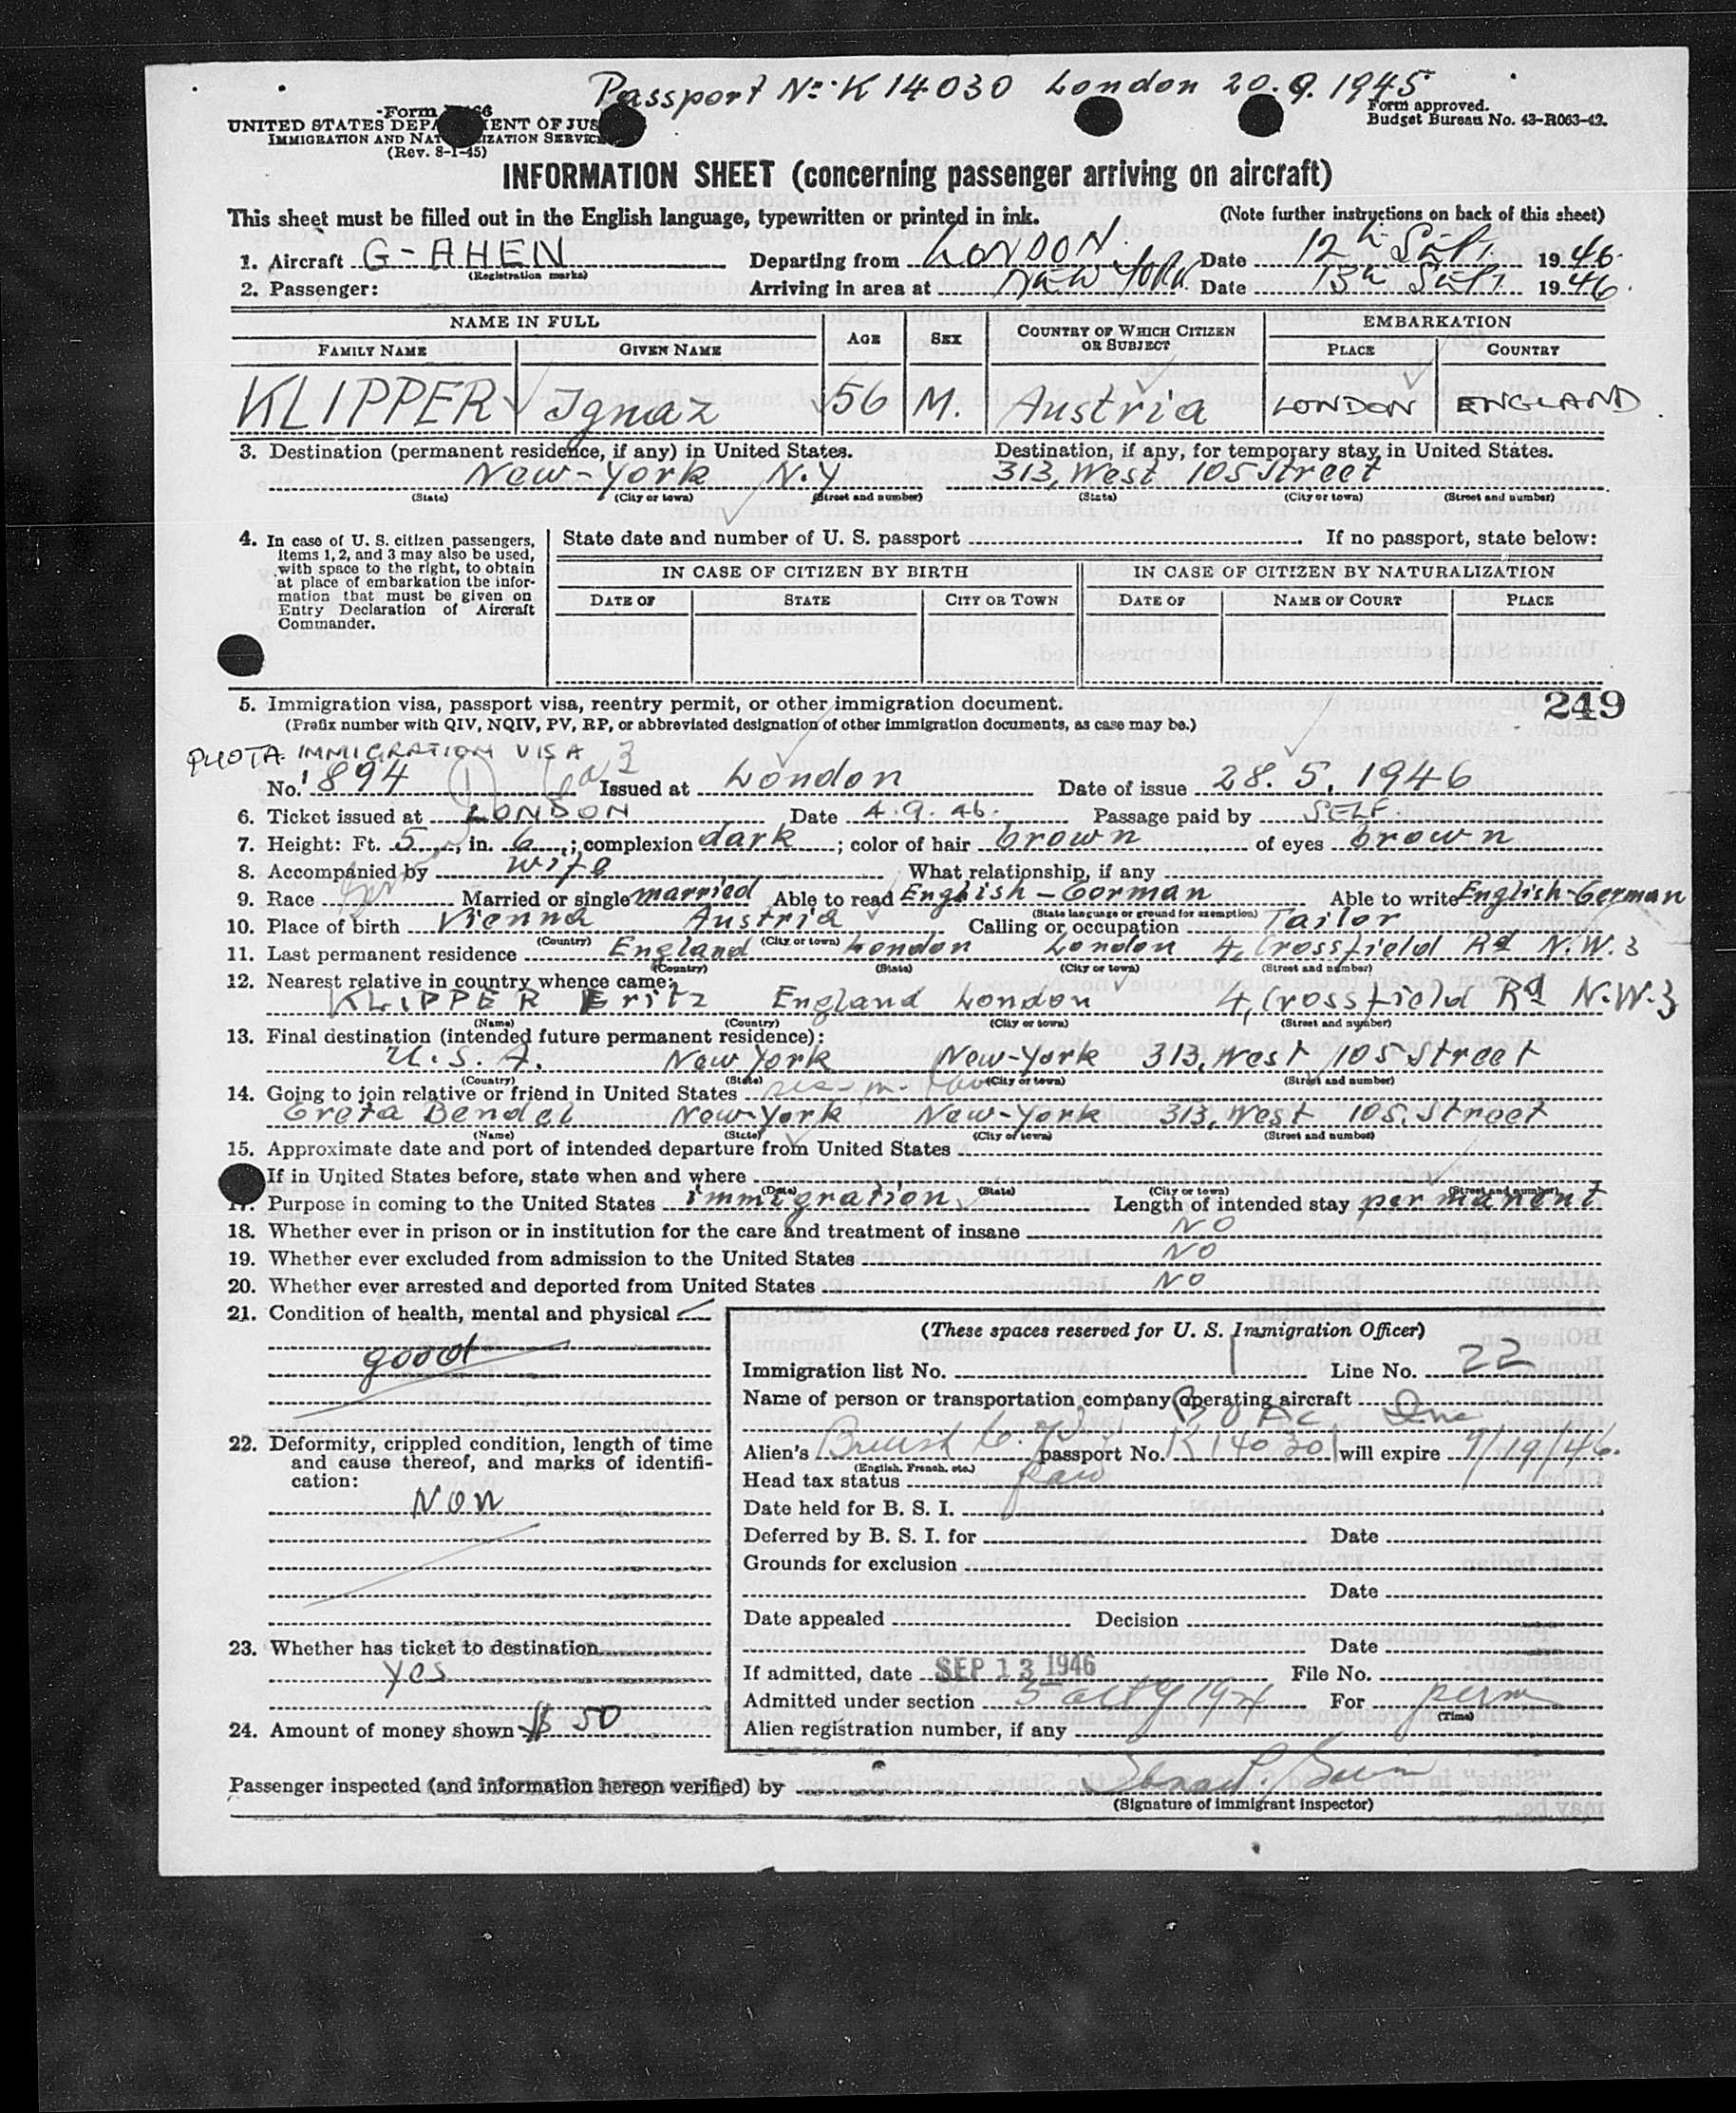 Passport No: K 14030 London 20.9.1945
Form
UNITED STATES DEPARTMENT OF JUS
IMMIGRATION AND NATURALIZATION SERVICE
(Rev. 8-1-45)
Form approved.
Budget Bureau No. 43-R063-42.
INFORMATION SHEET (concerning passenger arriving on aircraft)
This sheet must be filled out in the English language, typewritten or printed in ink. (Note further instructions on back of this sheet)
1. Aircraft G-AHEN Departing from LONDON. Date 12th Sept. 1946.
(Registration marks)
2. Passenger: Arriving in area at New York Date 13th Sept. 1946.
NAME IN FULL AGE SEX COUNTRY OF WHICH CITIZEN OR SUBJECT EMBARKATION
FAMILY NAME GIVEN NAME PLACE COUNTRY
KLIPPER Ignaz 56 M. Austria LONDON ENGLAND.
3. Destination (permanent residence, if any) in United States. Destination, if any, for temporary stay in United States.
New-York N.Y 313, West 105 Street
(State) (City or town) (Street and number) (State) (City or town) (Street and number)
4. In case of U. S. citizen passengers, items 1, 2, and 3 may also be used, with space to the right, to obtain at place of embarkation the information that must be given on Entry Declaration of Aircraft Commander.
State date and number of U. S. passport If no passport, state below:
IN CASE OF CITIZEN BY BIRTH IN CASE OF CITIZEN BY NATURALIZATION
DATE OF STATE CITY OR TOWN DATE OF NAME OF COURT PLACE
5. Immigration visa, passport visa, reentry permit, or other immigration document. 249
(Prefix number with QIV, NQIV, PV, RP, or abbreviated designation of other immigration documents, as case may be.)
QUOTA IMMIGRATION VISA
No. 894 Issued at London Date of issue 28.5.1946
6. Ticket issued at LONDON Date 4.9.46. Passage paid by SELF.
7. Height: Ft. 5, in. 6; complexion dark; color of hair brown of eyes brown
8. Accompanied by wife What relationship, if any
9. Race Married or single married Able to read English-German Able to write English-German
(State language or ground for exemption)
10. Place of birth Vienna Austria Calling or occupation Tailor
(Country) (City or town)
11. Last permanent residence England London London 4, Crossfield Rd N.W.3
(Country) (State) (City or town) (Street and number)
12. Nearest relative in country whence came:
KLIPPER Fritz England London 4, Crossfield Rd N.W.3
(Name) (Country) (City or town) (Street and number)
13. Final destination (intended future permanent residence):
U.S.A. New York New-York 313, West 105 Street
(Country) (State) (City or town) (Street and number)
14. Going to join relative or friend in United States
Greta Bendel New-York New-York 313, West 105. Street
(Name) (State) (City or town) (Street and number)
15. Approximate date and port of intended departure from United States
If in United States before, state when and where
(Date) (State) (City or town) (Street and number)
17. Purpose in coming to the United States immigration Length of intended stay permanent
18. Whether ever in prison or in institution for the care and treatment of insane NO
19. Whether ever excluded from admission to the United States NO
20. Whether ever arrested and deported from United States NO
21. Condition of health, mental and physical
good
22. Deformity, crippled condition, length of time and cause thereof, and marks of identification:
Non
23. Whether has ticket to destination
yes
24. Amount of money shown $ 50
(These spaces reserved for U. S. Immigration Officer)
Immigration list No. 1 Line No. 22
Name of person or transportation company operating aircraft B O A C Inc
Alien's British C. of I. passport No. K 14030 will expire 9/19/46.
(English, French, etc.)
Head tax status paid
Date held for B. S. I.
Deferred by B. S. I. for Date
Grounds for exclusion
Date
Date appealed Decision
Date
If admitted, date SEP 13 1946 File No.
Admitted under section 5 act of 1924 For perm
(Time)
Alien registration number, if any
Passenger inspected (and information hereon verified) by
(Signature of immigrant inspector)